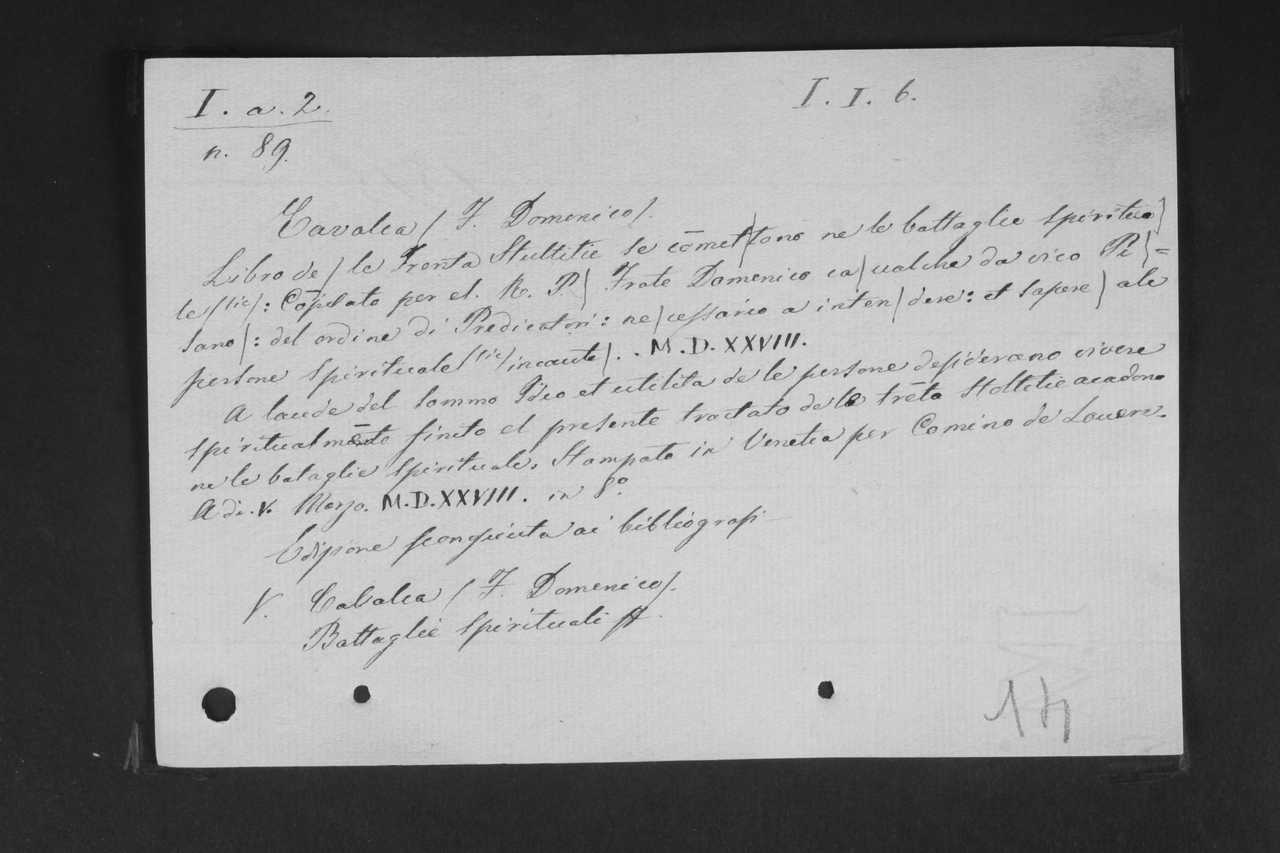 I. a. 2.
I. I. 6.
n. 89.
Cavalca (F. Domenico).
Libro de | le Trenta Stultitie se cōmet|tono ne le battaglie spiritua|
le (sic) |: Cōpilato per el. R. P. | Frate Domenico ca|ualcha da vico Pi|=
sano |: del ordine di Predicatori: ne|cessario a inten|dere: et sapere | ale
persone spirituale (sic) incaute |. . M.D.XXVIII.
A laude del sommo Idio et utilita de le persone desiderano vivere
spiritualmēte finito el presente tractato de le trēta stoltitie acadono
ne le bataglie spirituale. Stampata in Venetia per Comino de Louere.
A di. V. Marzo. M.D.XXVIII. in 8.º
Edizione sconosciuta ai bibliografi
V. Cavalca (F. Domenico).
Battaglie spirituali
14